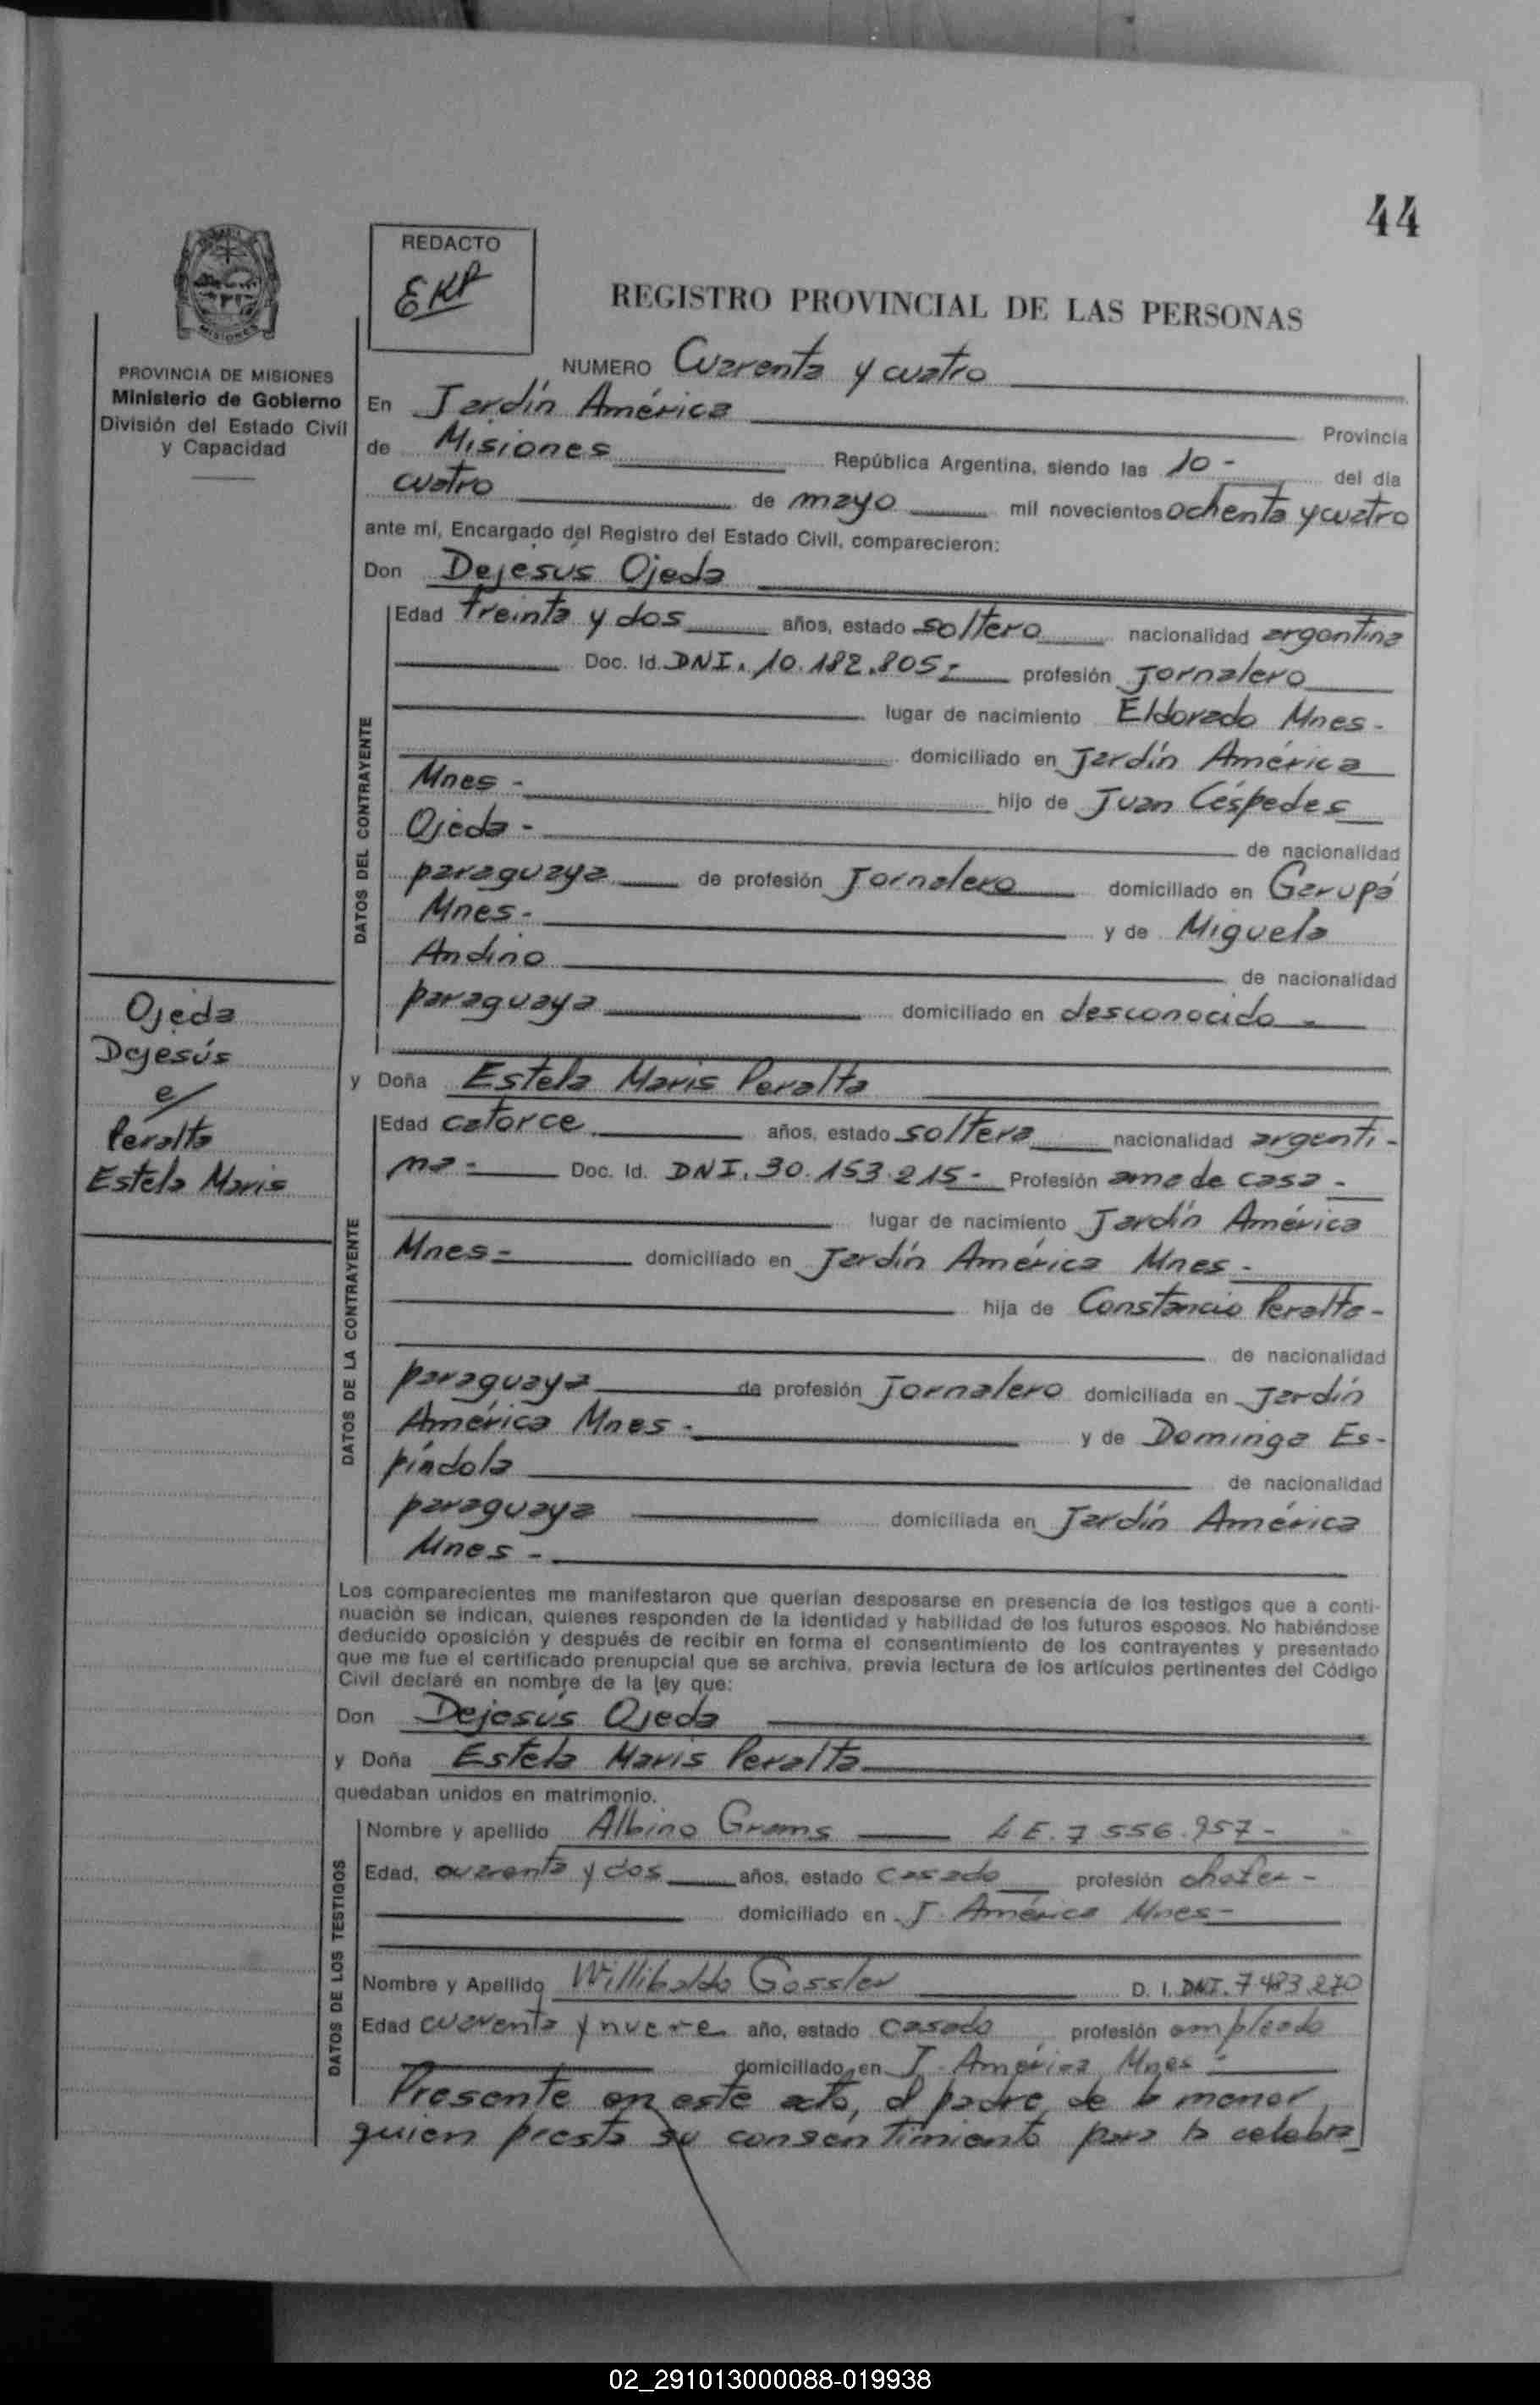 44
REDACTO
EKP
REGISTRO PROVINCIAL DE LAS PERSONAS
PROVINCIA DE MISIONES
Ministerio de Gobierno
División del Estado Civil
y Capacidad
MISIONES
NUMERO Cuarenta y cuatro
En Jardín América Provincia
de Misiones República Argentina, siendo las 10 - del día
cuatro de mayo mil novecientos ochenta y cuatro
ante mí, Encargado del Registro del Estado Civil, comparecieron:
Don Dejesús Ojeda
DATOS DEL CONTRAYENTE
Edad treinta y dos años, estado soltero nacionalidad argentina
Doc. Id. DNI. 10.182.805 - profesión Jornalero
lugar de nacimiento Eldorado Mnes -
domiciliado en Jardín América
Mnes - hijo de Juan Céspedes
Ojeda - de nacionalidad
paraguaya de profesión Jornalero domiciliado en Garupá
Mnes - y de Miguela
Andino de nacionalidad
paraguaya domiciliado en desconocido -
Ojeda
Dejesús
e/
Peralta
Estela Maris
y Doña Estela Maris Peralta
DATOS DE LA CONTRAYENTE
Edad catorce años, estado soltera nacionalidad argenti-
na - Doc. Id. DNI. 30.153.215 - Profesión ama de casa -
lugar de nacimiento Jardín América
Mnes - domiciliado en Jardín América Mnes -
hija de Constancio Peralta -
de nacionalidad
paraguaya de profesión Jornalero domiciliada en Jardín
América Mnes - y de Dominga Es-
píndola de nacionalidad
paraguaya domiciliada en Jardín América
Mnes -
Los comparecientes me manifestaron que querían desposarse en presencia de los testigos que a conti-
nuación se indican, quienes responden de la identidad y habilidad de los futuros esposos. No habiéndose
deducido oposición y después de recibir en forma el consentimiento de los contrayentes y presentado
que me fue el certificado prenupcial que se archiva, previa lectura de los artículos pertinentes del Código
Civil declaré en nombre de la ley que:
Don Dejesús Ojeda
y Doña Estela Maris Peralta
quedaban unidos en matrimonio.
DATOS DE LOS TESTIGOS
Nombre y apellido Albino Grams L E. 7 556.957 -
Edad, cuarenta y dos años, estado casado profesión chofer -
domiciliado en J. América Mnes -
Nombre y Apellido Willibaldo Gossler D. I. DNI. 7.483.270
Edad cuarenta y nueve año, estado casado profesión empleado
domiciliado en J. América Mnes -
Presente en este acto, el padre de la menor
quien presta su consentimiento para la celebra
02_291013000088-019938